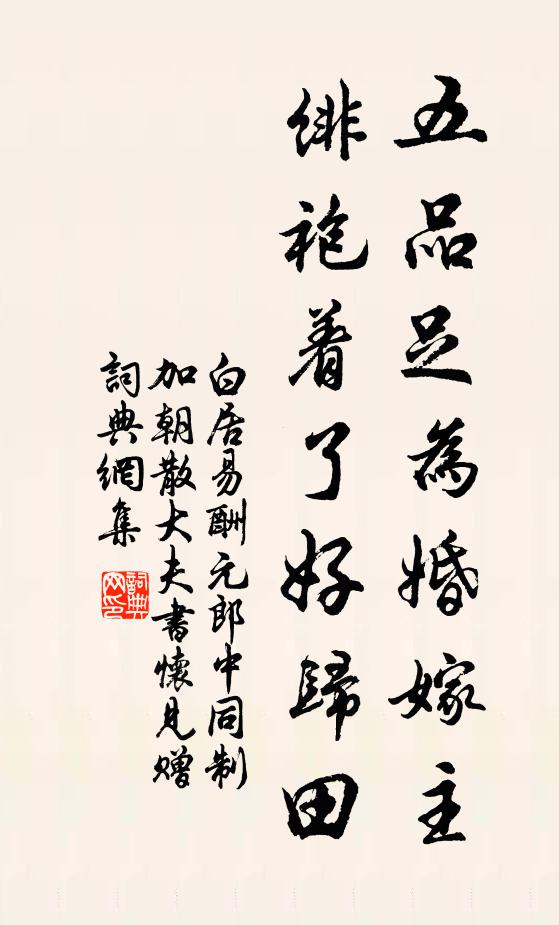 五品足為婚嫁主
緋袍着了好歸田
白居易酬元郎中同制
加朝散大夫書懷見贈
詞典網集
詞典網印